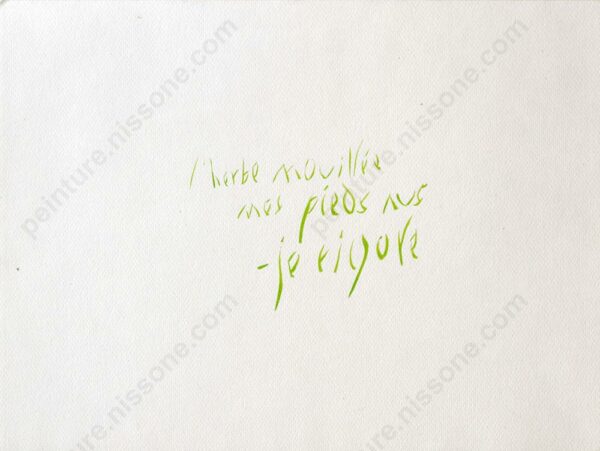 l'herbe mouillée
mes pieds nus
- je rigole
peinture.nissone.com
peinture.nissone.com
peinture.nissone.com
peinture.nissone.com